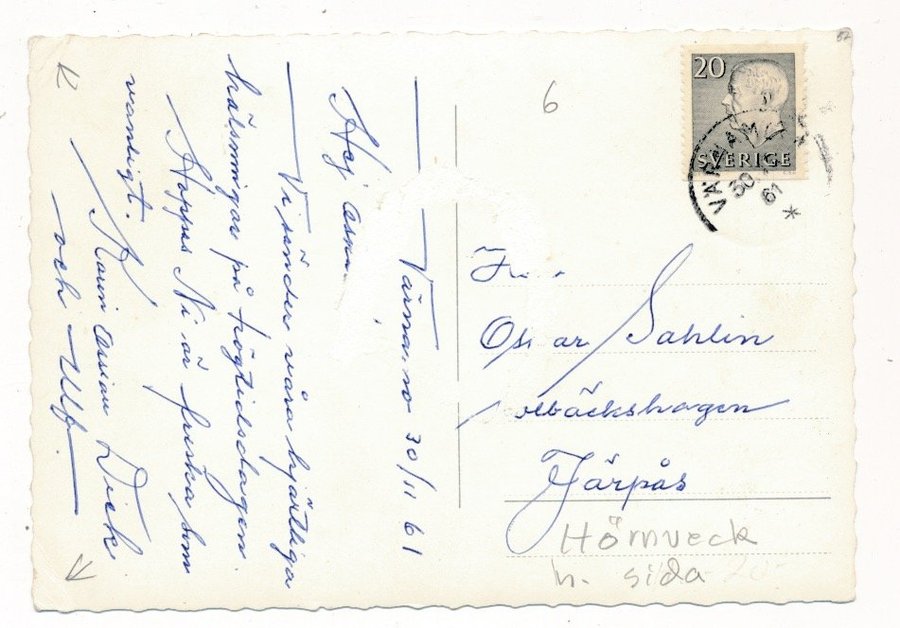 Värnamo 30/11 61
Hej
Vi sänder våra hjärtliga
hälsningar på högtidsdagen.
Hoppas Ni är friska som
vanligt.
Karin Dick
och Ulf.
6
57
20
SVERIGE
30
61 *
Oscar Sahlin
Järpås
Hörnveck
h. sida